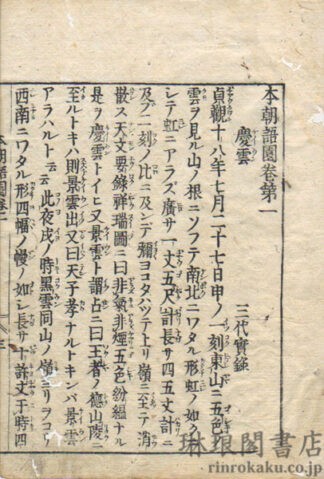 本朝語園卷第一
慶雲
三代實錄
貞觀十八年七月二十七日申ノ一刻東山ニ五色ノ
雲ヲ見ル山ノ根ニソフテ南北ニワタル形虹ノ如クニ
シテ虹ニアラズ廣サ一丈五尺計長サ四五丈計ニ
及ブ二刻ノ比ニ及ンデ彌ヨコタハツテ上リ嶺ニ至テ消
散ス天文要錄祥瑞圖ニ曰非氣非煙五色紛縕ナル
是ヲ慶雲トイヒ又景雲ト謂占ニ曰王者ノ德山陵ニ
至ルトキハ則景雲出又曰天子孝ナルトキンバ景雲
アラハルト云云此夜戌ノ時黒雲同山ノ嶺ニヲコリ
西南ニワタル形四幅ノ幔ノ如シ長サ十許丈于時四
本朝語園卷一
琳琅閣書店
rinrokaku.co.jp